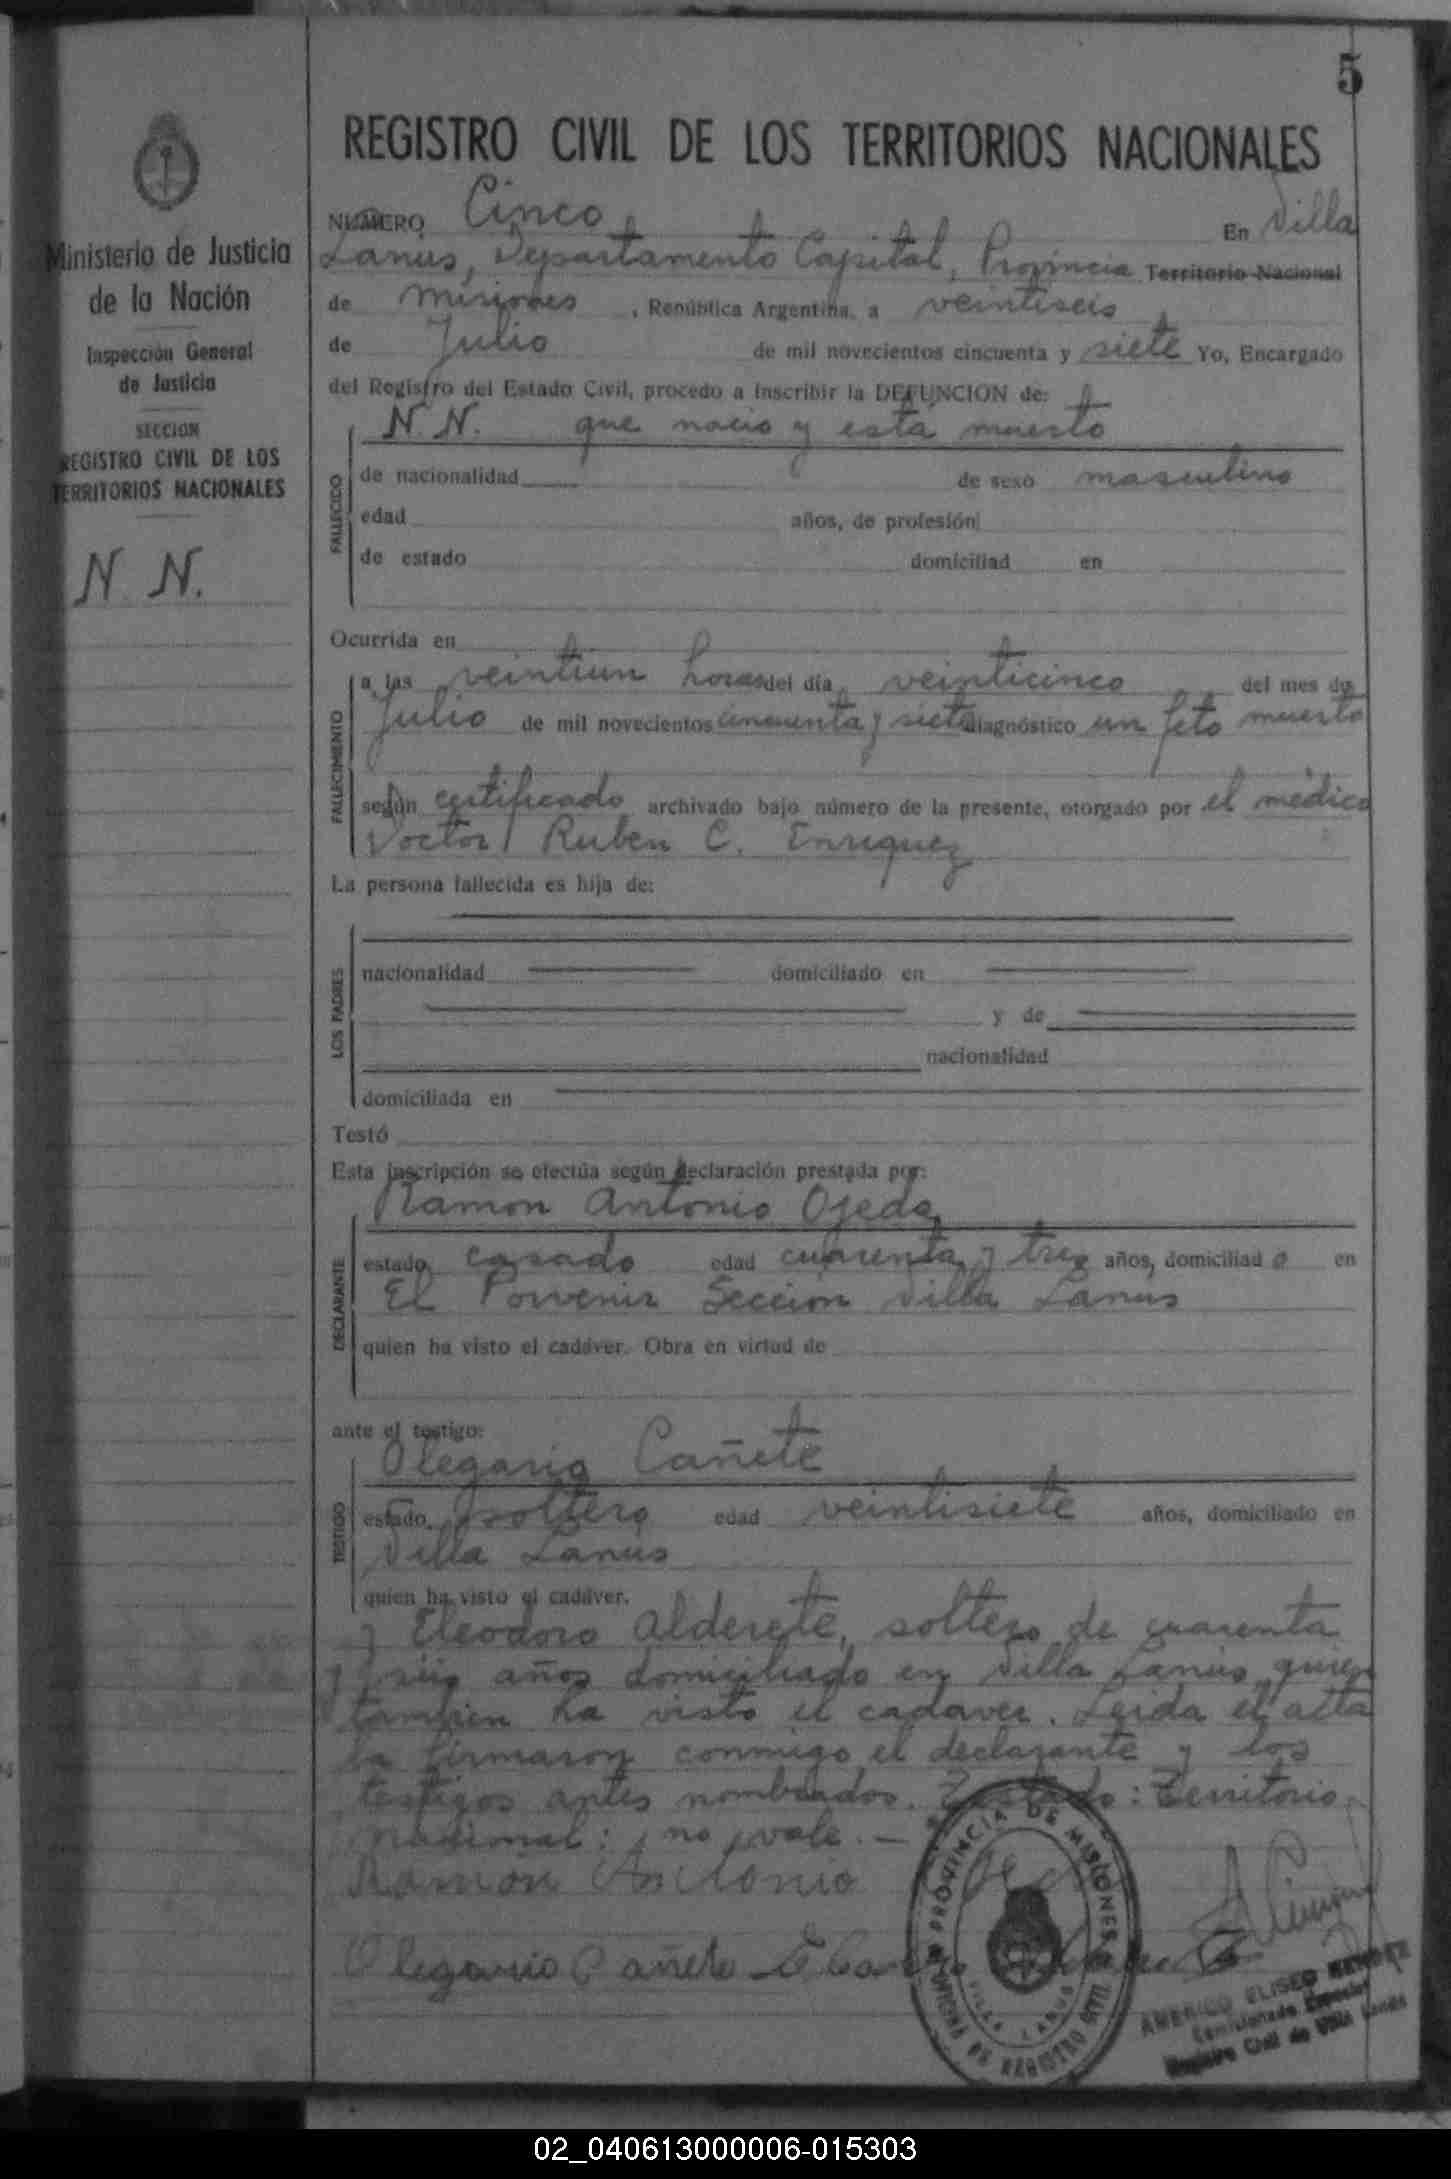 5
REGISTRO CIVIL DE LOS TERRITORIOS NACIONALES
Ministerio de Justicia
de la Nación
Inspección General
de Justicia
SECCION
REGISTRO CIVIL DE LOS
TERRITORIOS NACIONALES
N. N.
NUMERO Cinco En Villa
Lanús, Departamento Capital, Provincia Territorio Nacional
de Misiones, República Argentina, a veintiseis
de Julio de mil novecientos cincuenta y siete Yo, Encargado
del Registro del Estado Civil, procedo a inscribir la DEFUNCION de:
N. N. que nacio y está muerto
FALLECIDO
de nacionalidad de sexo masculino
edad años, de profesión
de estado domiciliad en
Ocurrida en
FALLECIMIENTO
a las veintiun horas del día veinticinco del mes de
Julio de mil novecientos cincuenta y siete diagnóstico un feto muerto
según certificado archivado bajo número de la presente, otorgado por el médico
Doctor Ruben C. Enriquez
La persona fallecida es hija de:
LOS PADRES
nacionalidad domiciliado en
y de
nacionalidad
domiciliada en
Testó
Esta inscripción se efectúa según declaración prestada por:
Ramon Antonio Ojeda
DECLARANTE
estado casado edad cuarenta y tres años, domiciliad o en
El Porvenir Sección Villa Lanus
quien ha visto el cadáver. Obra en virtud de
ante el testigo:
Olegario Cañete
TESTIGO
estado soltero edad veintisiete años, domiciliado en
Villa Lanus
quien ha visto el cadáver.
y Eleodoro Alderete, soltero de cuarenta
y seis años domiciliado en Villa Lanus, quien
tambien ha visto el cadaver. Leida el acta
la firmaron conmigo el declarante y los
testigos antes nombrados. Testado: Territorio
nacional: no vale. —
Ramon Antonio
Olegario Cañete
PROVINCIA DE MISIONES
OFICINA DE REGISTRO CIVIL
VILLA LANUS
AMERICO ELISEO MENDEZ
Comisionado Especial
Registro Civil de Villa Lanús
02_040613000006-015303